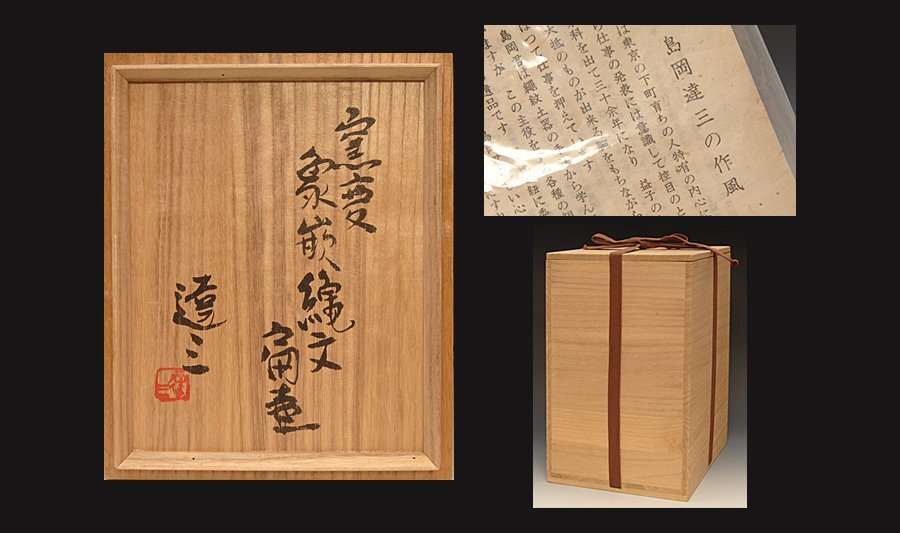 窯変
象嵌縄文
扁壷
達三
島岡達三の作風
は東京の下町育ちの人特有の内心に
の仕事の発表には意識して控目のと
科を出て三十余年になり 益子の
大抵のものが出来る腕をもちながら
はって仕事を押えて ます
島岡君は縄紋土器の から学ん
ますが この主役を 各種の
遺品です